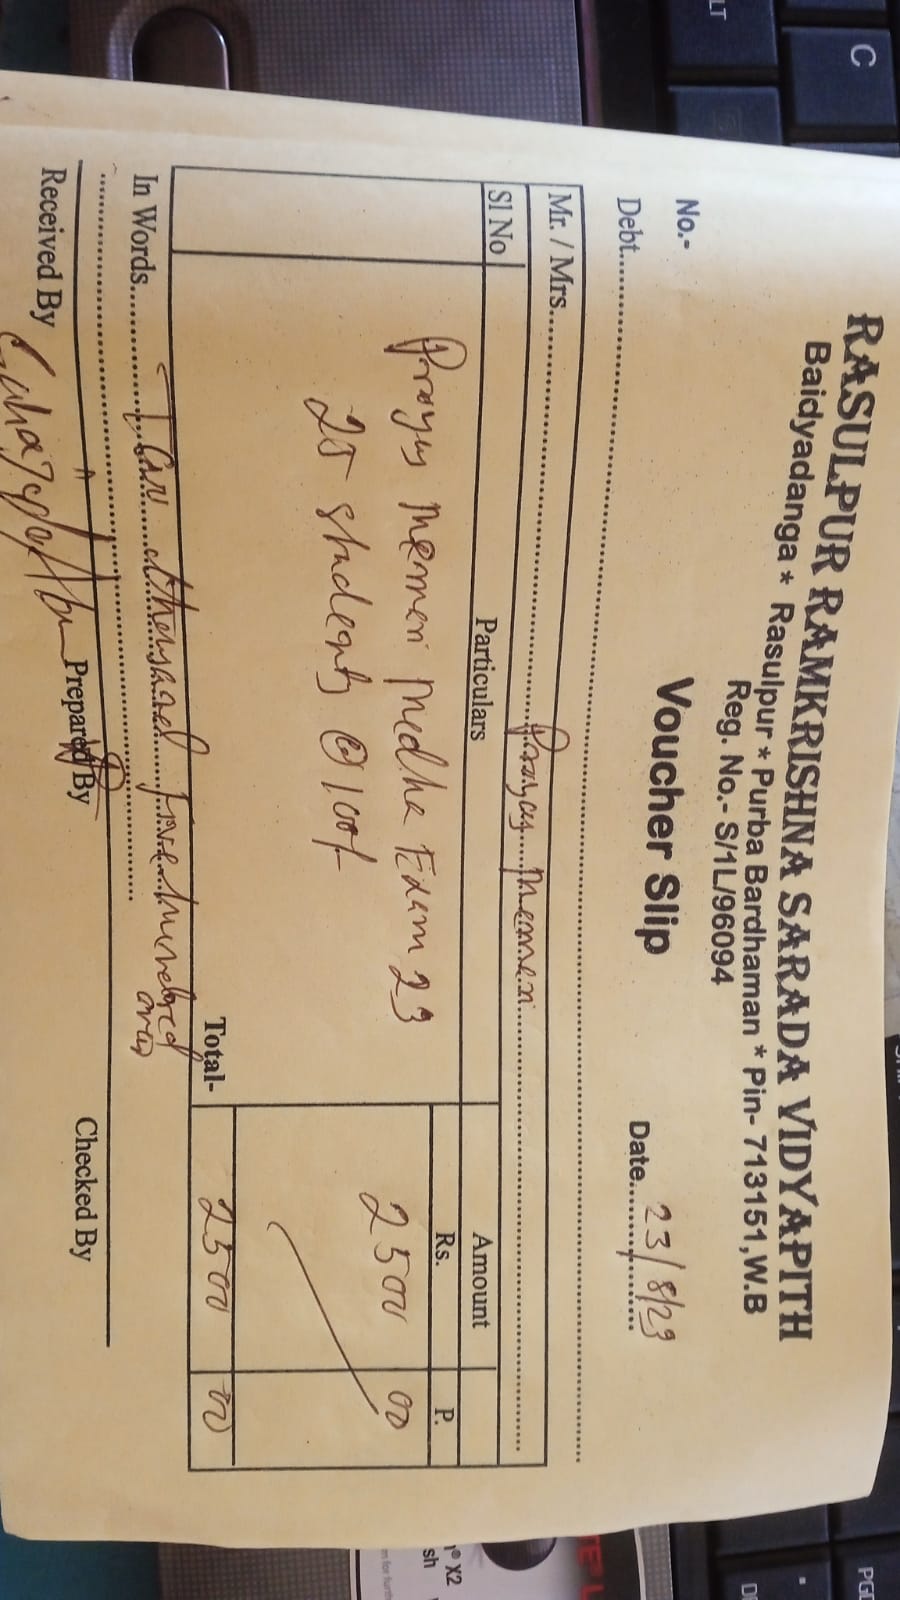 RASULPUR RAMKRISHNA SARADA VIDYAPITH
Baidyadanga * Rasulpur * Purba Bardhaman * Pin- 713151,W.B
Reg. No.- S/1L/96094
No.-
Voucher Slip
Debt.
Date. 23/8/23
Mr. / Mrs. Prayas Memari
Sl No Particulars Amount
Rs. P.
Prayas Memari Medha Exam 23 2500 00
25 students @ 100/-
Total- 2500 00
In Words. thousand five hundred only
Received By Prepared By Checked By
C
LT
X2
sh